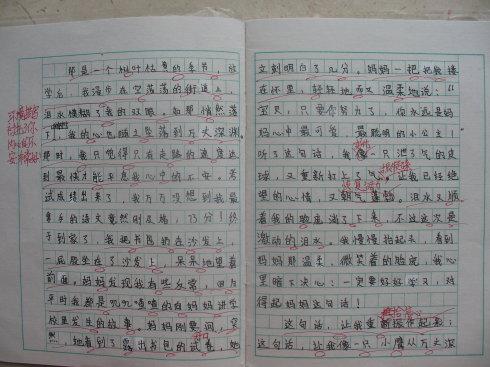 那是一个树叶枯黄的季节，放
学后，我漫步在空荡荡的街道上，
泪水模糊了我的双眼，如那悄然落
下，我的心也随之坠落到万丈深渊。
那时，我只觉得只有走路的速度达
到最快才能平息我心中的不安。考
试成绩出来了，我万万没想到我最
拿手的语文竟然刚及格，73分！终
于到家了，我把书包扔在沙发上，
一屁股坐在了沙发上，呆呆地望着
前面，妈妈发现我有些反常，因为
平时我都是叽叽喳喳的向妈妈讲学
校里发生的故事。妈妈刚要问，突
然，她看到了露出书包的试卷，她
立刻明白了几分。妈妈一把把我搂
在怀里，轻轻地而又温柔地说：“
宝贝，只要你努力了，你永远是妈
妈心中最可爱，最聪明的小公主！
听了这句话，我像一只泄了气的皮
球，又重新打上了气。让我已经绝
望的心情，又朝气蓬勃。泪水又顺
着我的脸庞滴了下来，不过这次是
激动的泪水。我慢慢抬起头，看到
妈妈那温柔、微笑着的脸庞，我心
里暗下决心：一定要好好学习，对
得起妈妈这句话！
这句话，让我重新振作起来；
这句话，让我像一只小鹰从万丈深